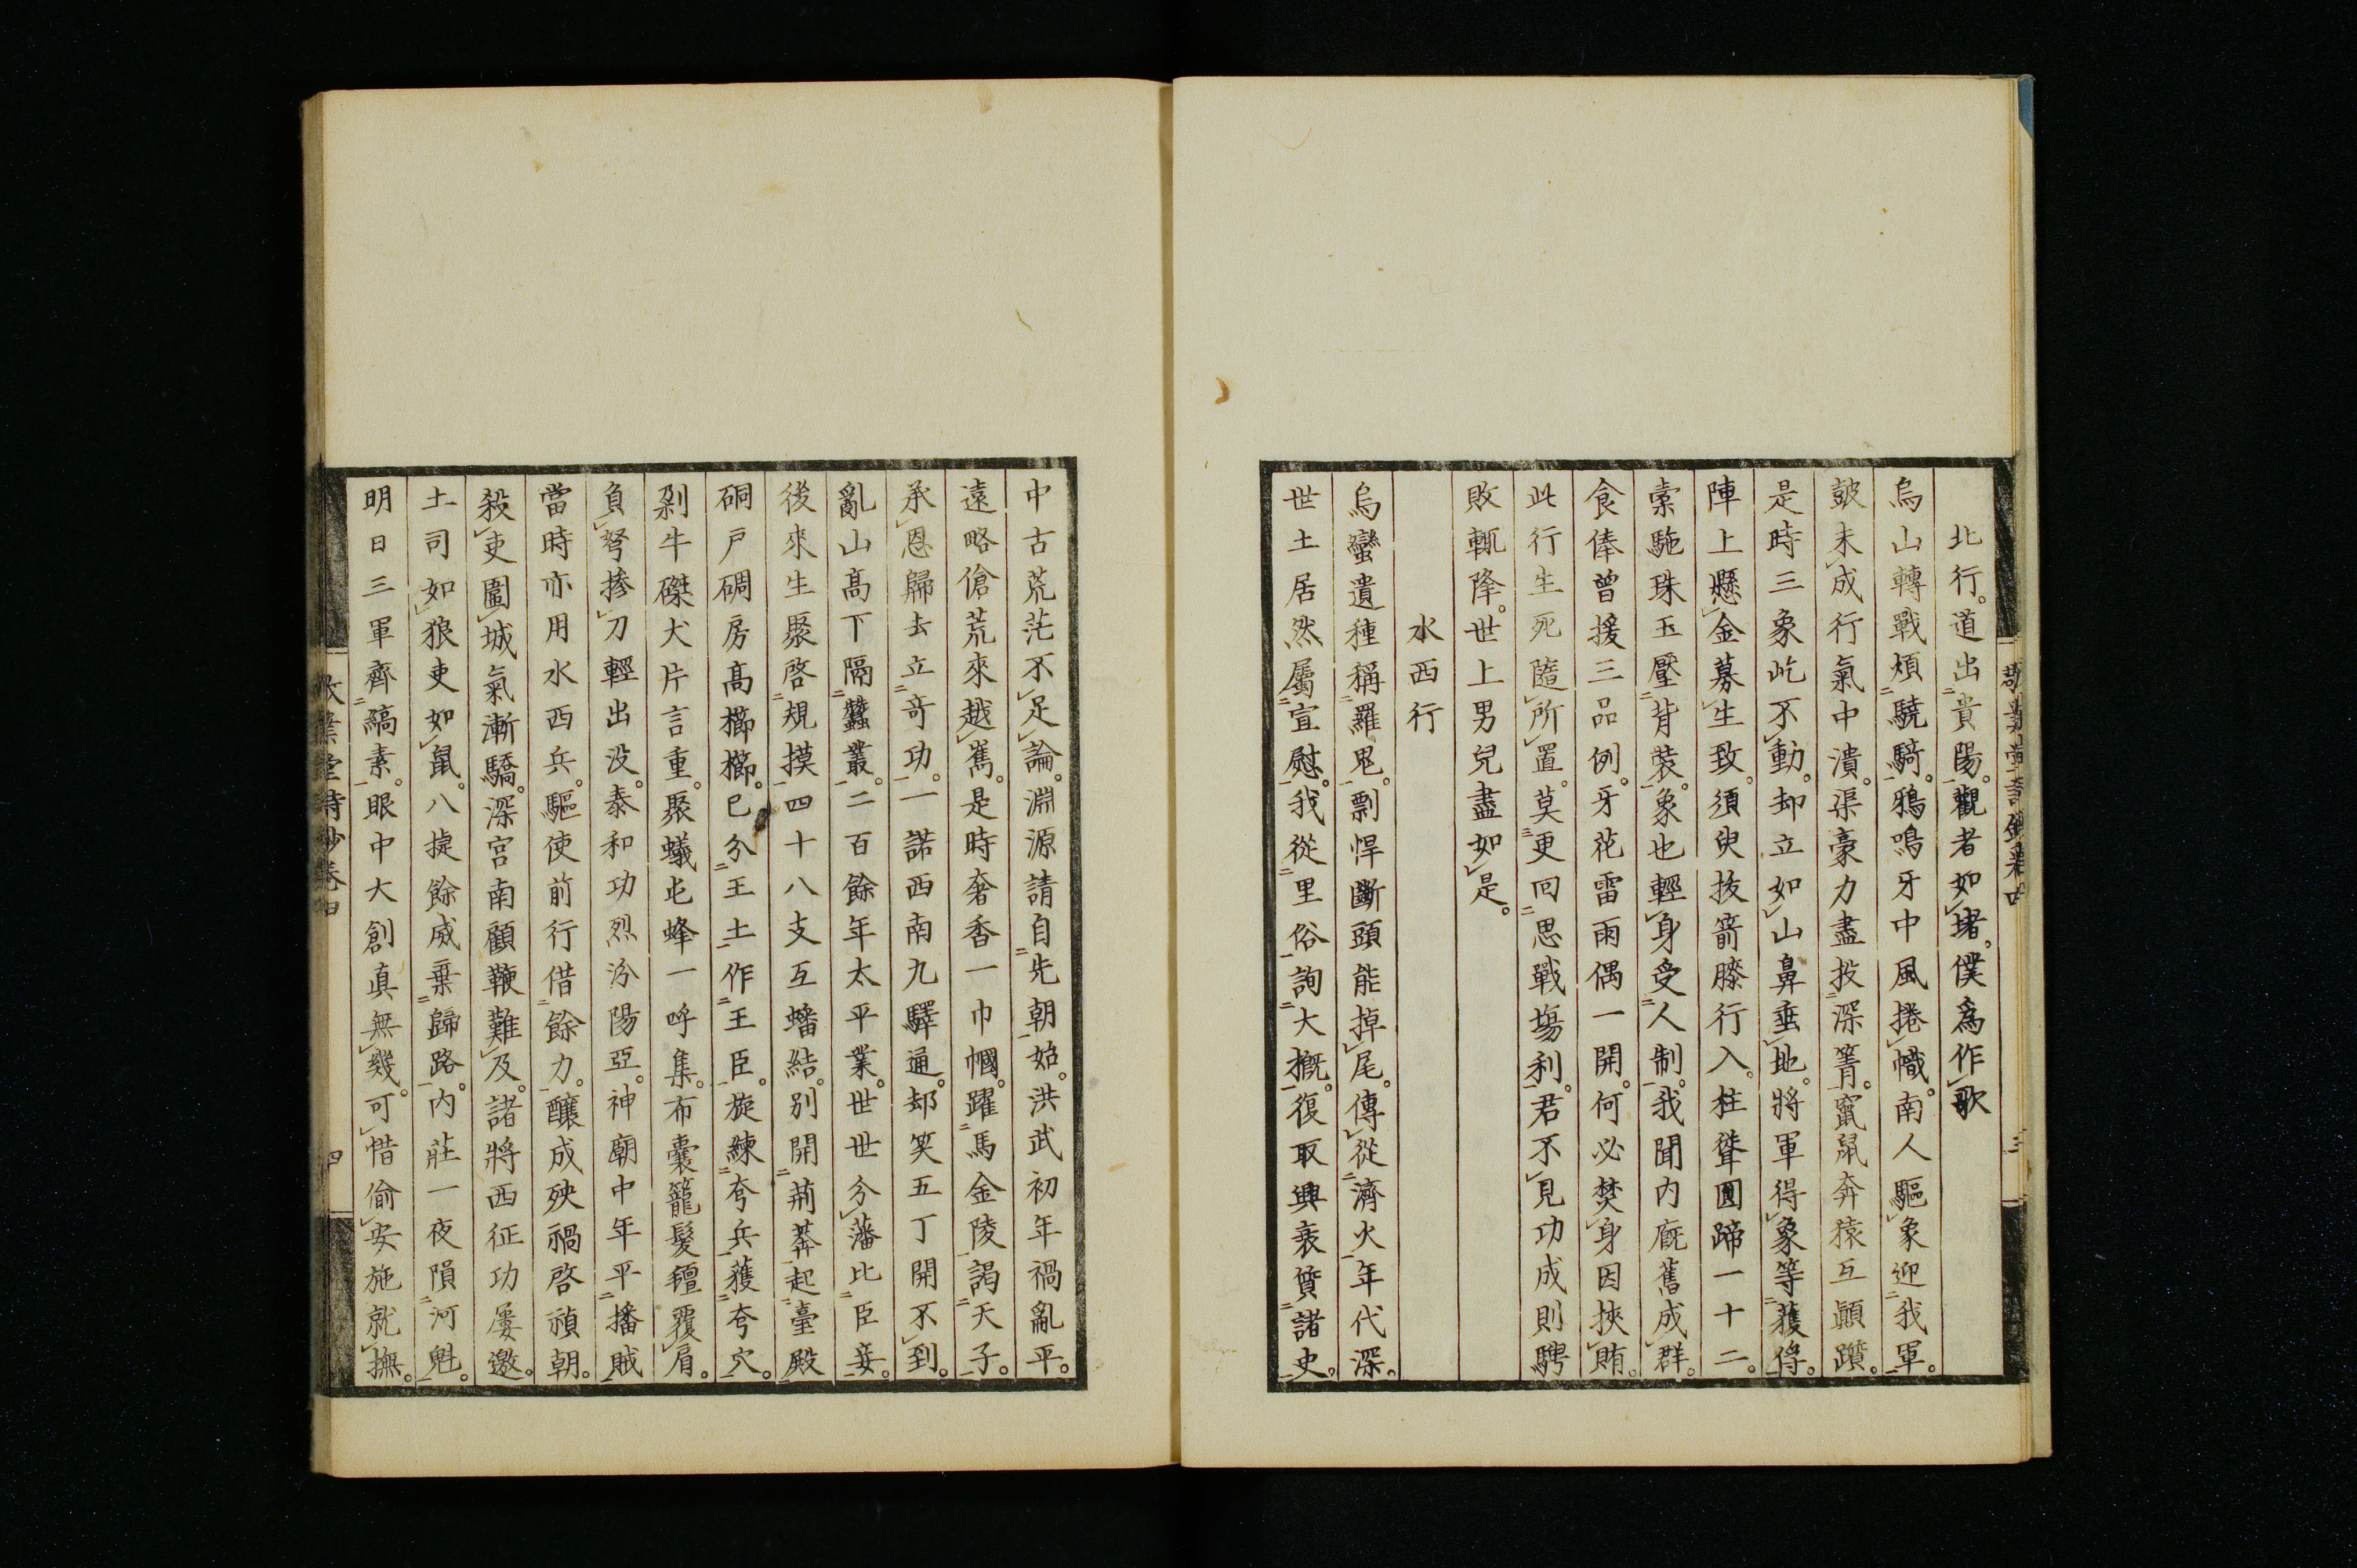 北行。道出貴陽。觀者如堵。僕爲作歌
烏山轉戰煩驍騎。鴉鳴牙中風捲幟。南人驅象迎我軍。
鼓未成行氣中潰。渠豪力盡投深箐。竄鼠奔猿互顛躓。
是時三象屹不動。却立如山鼻垂地。將軍得象等獲俘。
陣上懸金募生致。須臾拔箭膝行入。柱聳圓蹄一十二。
橐駞珠玉壓背裝。象也輕身受人制。我聞內廐舊成群。
食俸曾援三品例。牙花雷雨偶一開。何必焚身因挾賄。
此行生死隨所置。莫更回思戰塲利。君不見功成則騁
敗輒降。世上男兒盡如是。
水西行
烏蠻遺種稱羅鬼。剽悍斷頭能掉尾。傳從濟火年代深。
世土居然屬宣慰。我從里俗詢大概。復取興衰質諸史。
敬業堂詩鈔卷四
三
中古荒茫不足論。淵源請自先朝始。洪武初年禍亂平。
遠略傖荒來越嶲。是時奢香一巾幗。躍馬金陵謁天子。
承恩歸去立奇功。一諾西南九驛通。却笑五丁開不到。
亂山高下隔蠶叢。二百餘年太平業。世世分藩比臣妾。
後來生聚啓規摸。四十八支互蟠結。別開荊莽起臺殿
硐戶碉房高櫛櫛。已分王土作王臣。旋練夸兵獲夸穴。
剁牛磔犬片言重。聚蟻屯蜂一呼集。布囊籠髮氊覆肩。
負弩摻刀輕出沒。泰和功烈汾陽亞。神廟中年平播賊
當時亦用水西兵。驅使前行借餘力。釀成殃禍啓禎朝。
殺吏圍城氣漸驕。深宮南顧鞭難及。諸將西征功屢邀。
土司如狼吏如鼠。八捷餘威棄歸路。內莊一夜隕河魁。
明日三軍齊縞素。眼中大創眞無幾。可惜偷安施就撫。
敬業堂詩鈔卷四
四